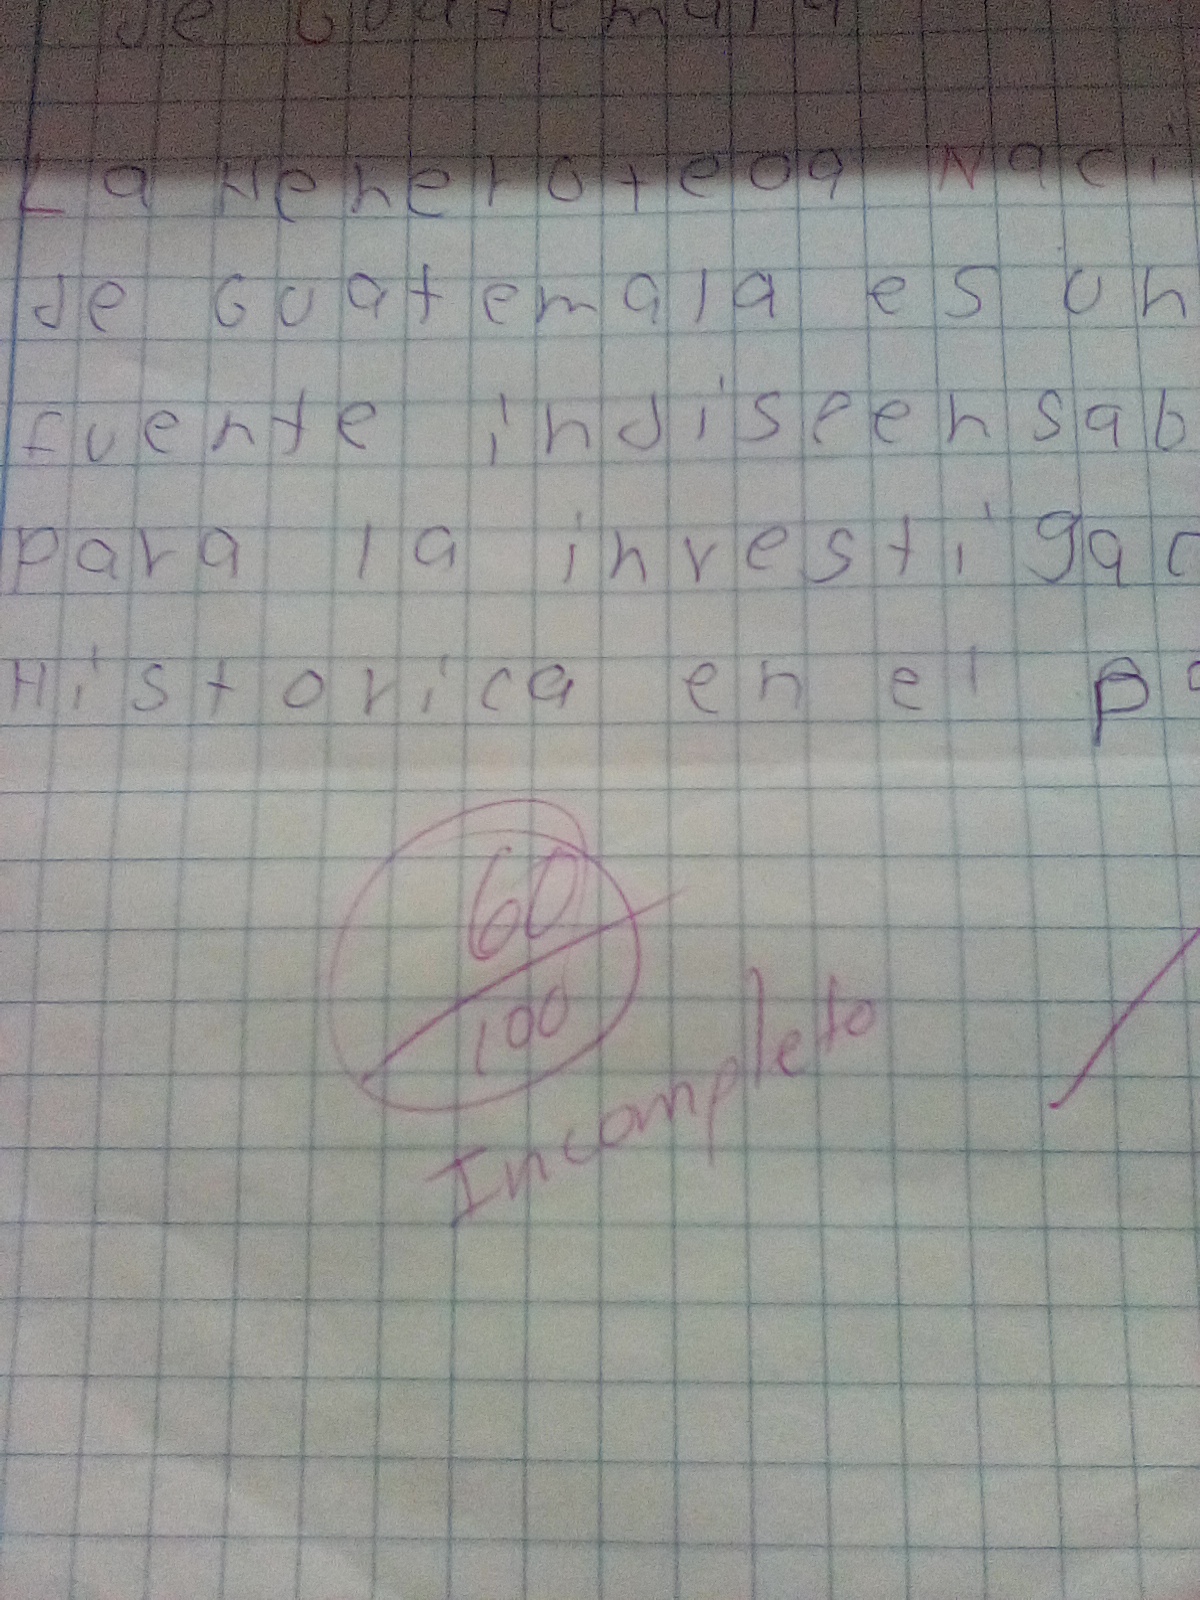 de Guatemala
La Heneroteoa Naci
de Guatemala es un
fuente indispensab
para la investigac
Historica en el pa
60
100
Incompleto